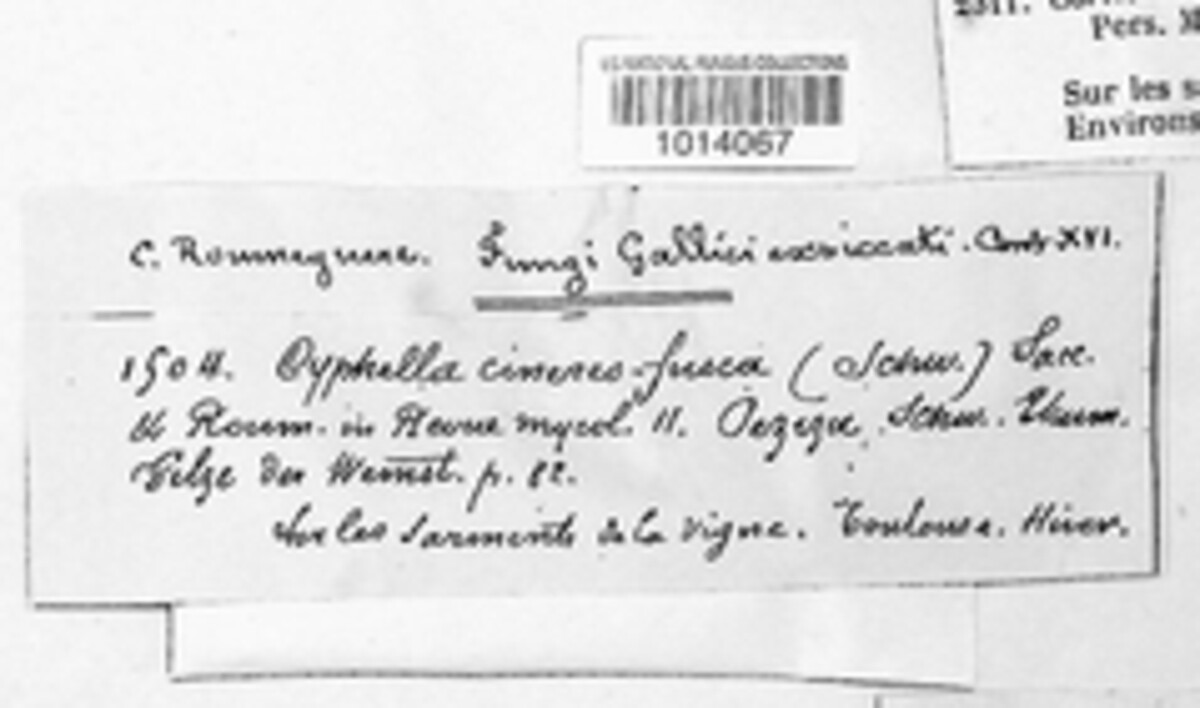 2311.
Pers.
Sur les
Environs
U.S. NATIONAL FUNGUS COLLECTIONS
1014067
C. Roumeguere. Fungi Gallici exsiccati. Cent. XVI.
1504. Cyphella cinereo-fusca (Schw.) Sacc.
& Roum. in Revue mycol. 11. Peziza, Schw. Thum.
Pilze des Weinst. p. 82.
Sur les Sarments de la Vigne. Toulouse. Hiver.